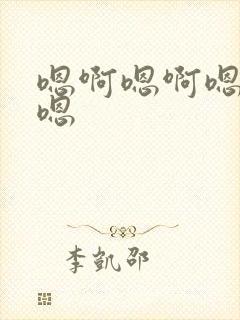 嗯啊嗯啊嗯
嗯
李凯邵